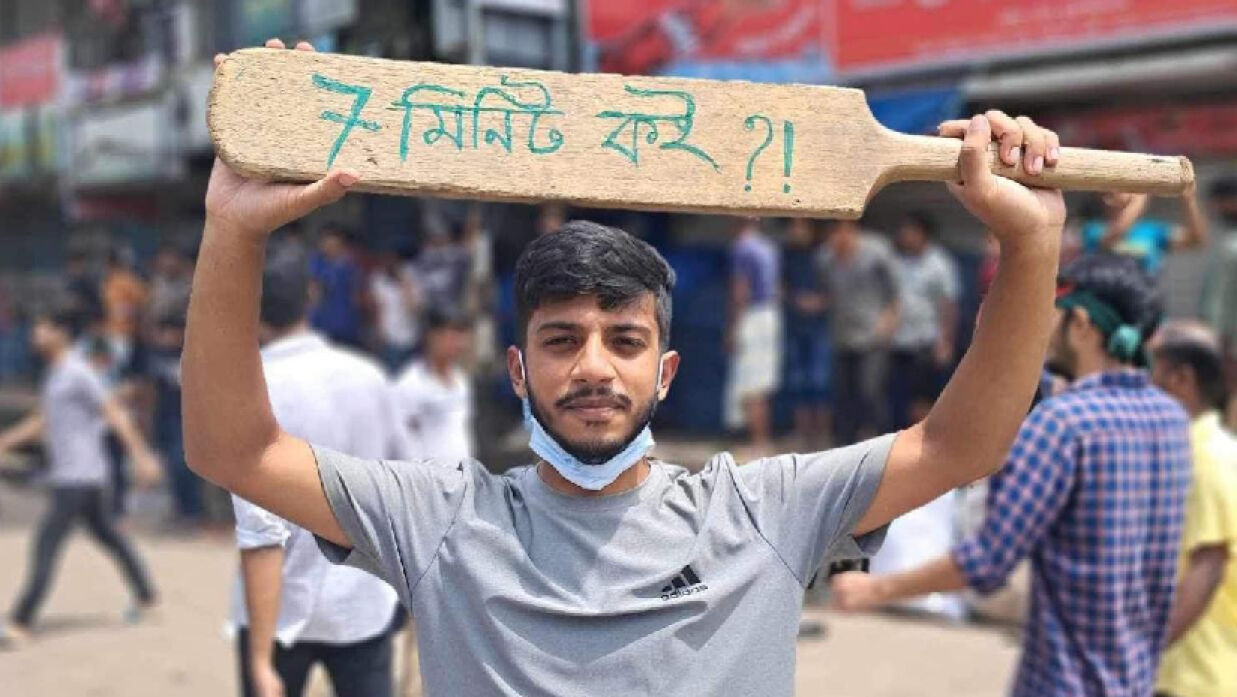 7 মিনিট কই ?!
adidas